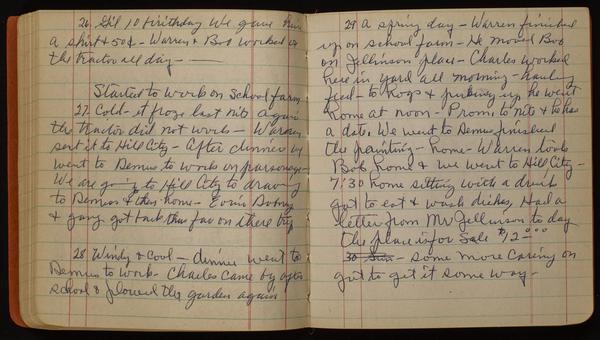 26 Gil 10 birthday We gave him
a shirt & 50¢ - Warren & Bob worked on
the tractor all day -
Started to work on School farm
27 Cold - it froze last nite again
the tractor did not work - Warren
sent it to Hill City - After dinner we
went to Demus to work on parsonage -
We are going to Hill City to drawing
to Demus & then home -
& gang got back this far on there trip
28 Windy & Cool - dinner went to
Demus to work - Charles came by after
school & plowed the garden again
29 a spring day - Warren finished
up on school farm - He moved Bob
on Jellinson place - Charles worked
here in yard all morning - hauling
feed - to hogs & picking up he went
home at noon - Prom to nite & he has
a date. We went to Demus finished
the painting - home - Warren took
Bob home & we went to Hill City -
7:30 home setting with a drink
got to eat & wash dishes, Had a
letter from Mr Jellinson to day
the place is for sale $12000
30 Sun - some more caring on
got to get it some way -